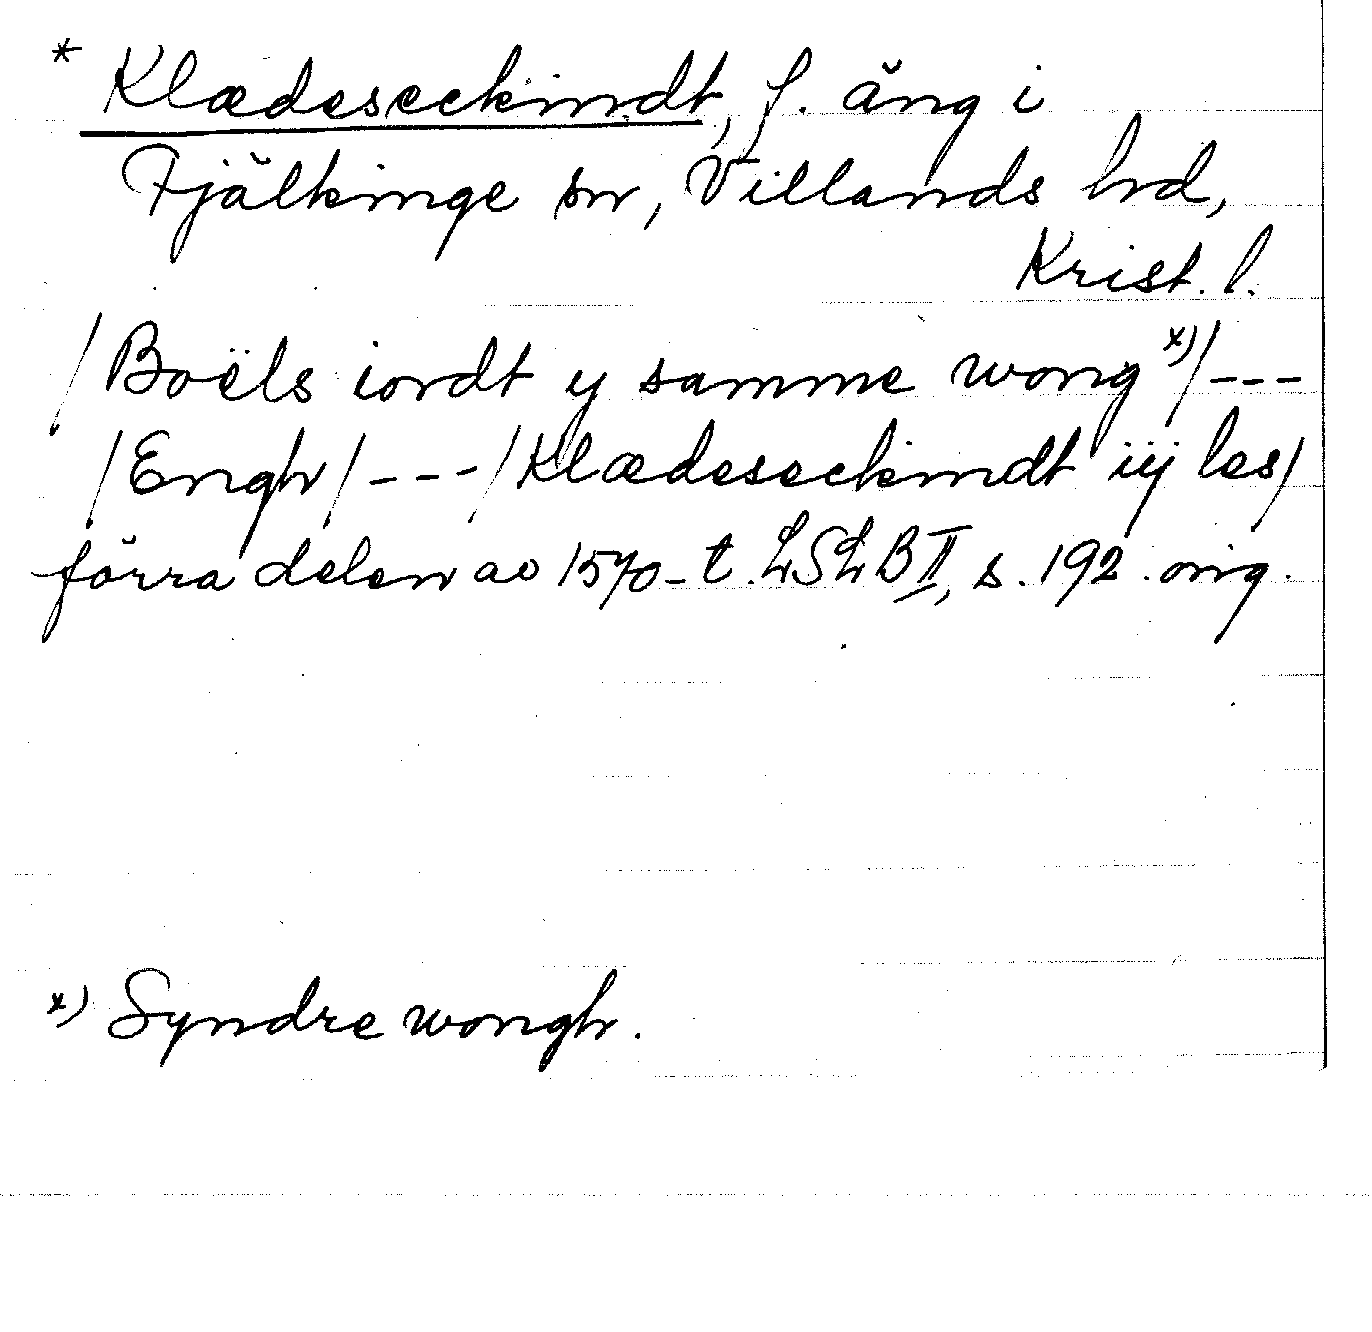 * Klædeseckindt, f. äng i
Fjälkinge sn, Villands hrd,
Krist. l.
/Boëls iordt y samme wong x)/---
/Engh/---/Klædeseckindt iij les/
förra delen av 1570-t. LSLB II, s. 192. orig.
x) Syndre wongh.